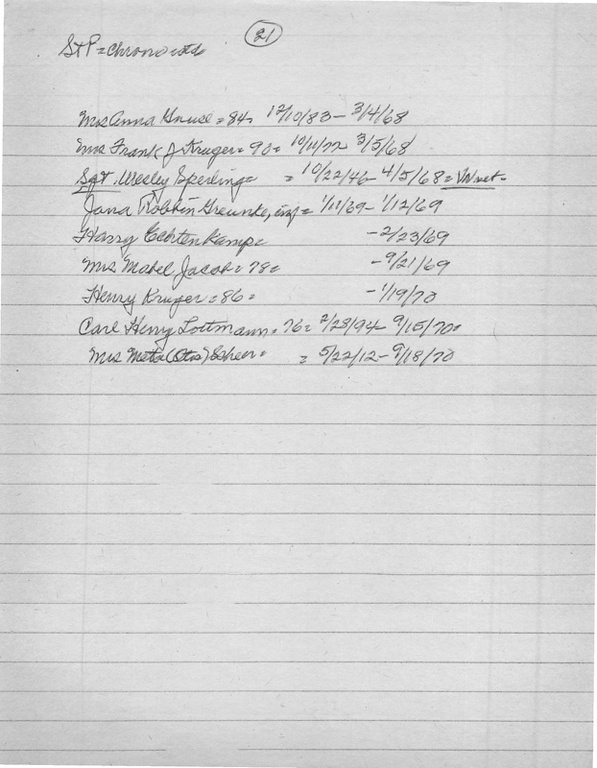 21
St P = Chrono
Mrs Anna Gruse = 84 = 12/10/83 - 3/4/68
Mrs Frank J. Kruger = 90 = 10/11/77 - 3/5/68
Sgt. Wesley Sperling = = 10/22/46 - 4/5/68 = VN vet -
Jana Robbin Greunke, inf = 1/11/69 - 1/12/69
Harry Echtenkamp = - 2/23/69
Mrs Mabel Jacob = 78 = - 9/21/69
Henry Kruger = 86 = - 1/19/70
Carl Henry Lottmann = 76 = 2/28/94 - 9/15/70 =
Mrs Meta (Otto) Scheer = = 5/22/12 - 9/18/70